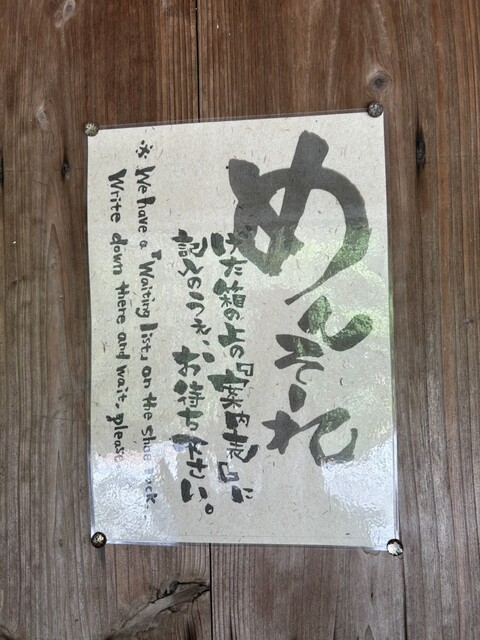 めんそーれ
げた箱の上の『案内表』に
記入のうえ、お待ち下さい。
※ We have a『Waiting list』on the shoe rack.
Write down there and wait, please